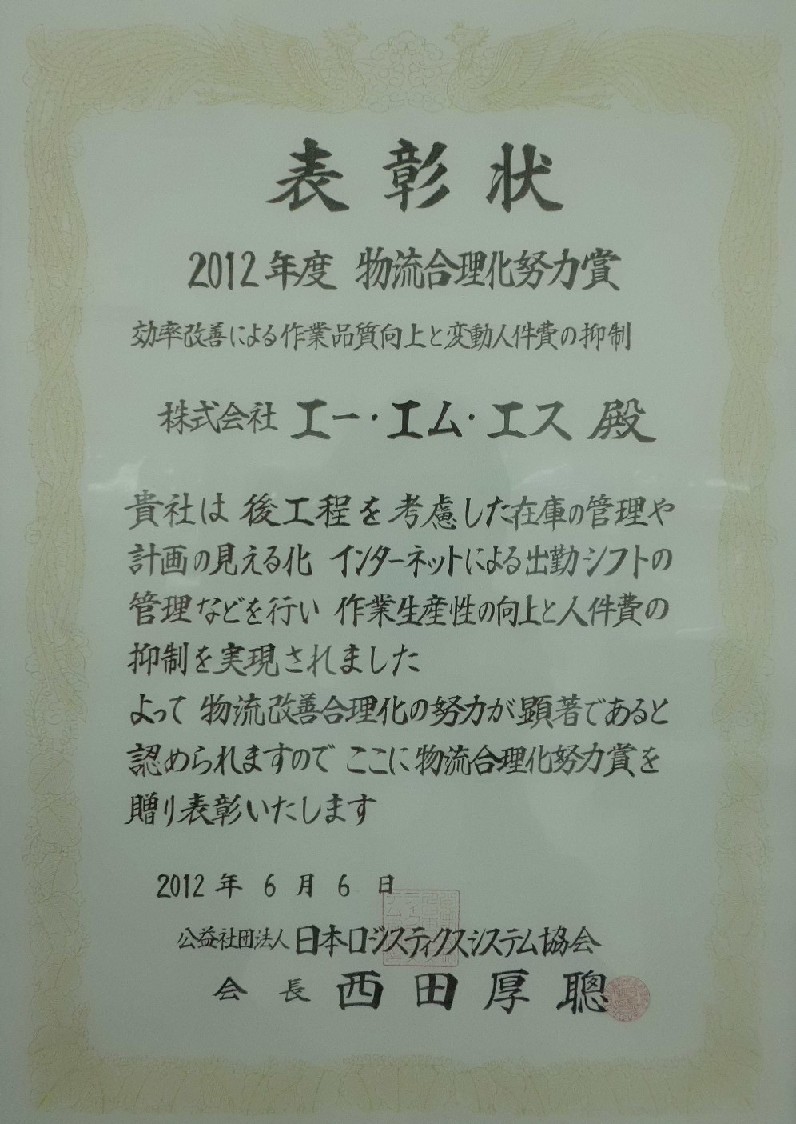 表彰状
2012年度 物流合理化努力賞
効率改善による作業品質向上と変動人件費の抑制
株式会社 エー・エム・エス 殿
貴社は 後工程を考慮した在庫の管理や
計画の見える化 インターネットによる出勤シフトの
管理などを行い 作業生産性の向上と人件費の
抑制を実現されました
よって 物流改善合理化の努力が顕著であると
認められますので ここに物流合理化努力賞を
贈り表彰いたします
2012年6月6日
公益社団法人 日本ロジスティクスシステム協会
会長 西田厚聰